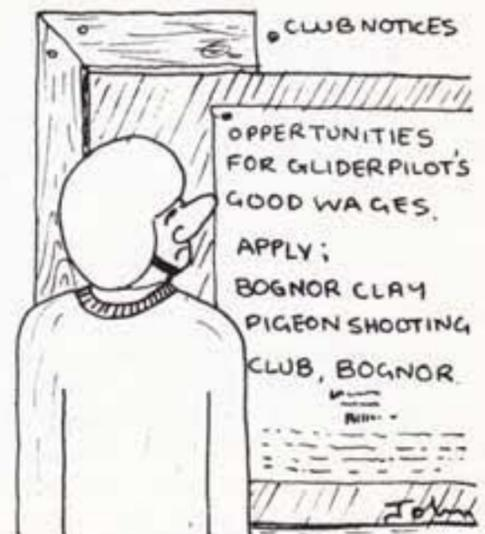 CLUB NOTICES
OPPERTUNITIES
FOR GLIDERPILOT'S
GOOD WAGES.
APPLY;
BOGNOR CLAY
PIGEON SHOOTING
CLUB, BOGNOR.
John